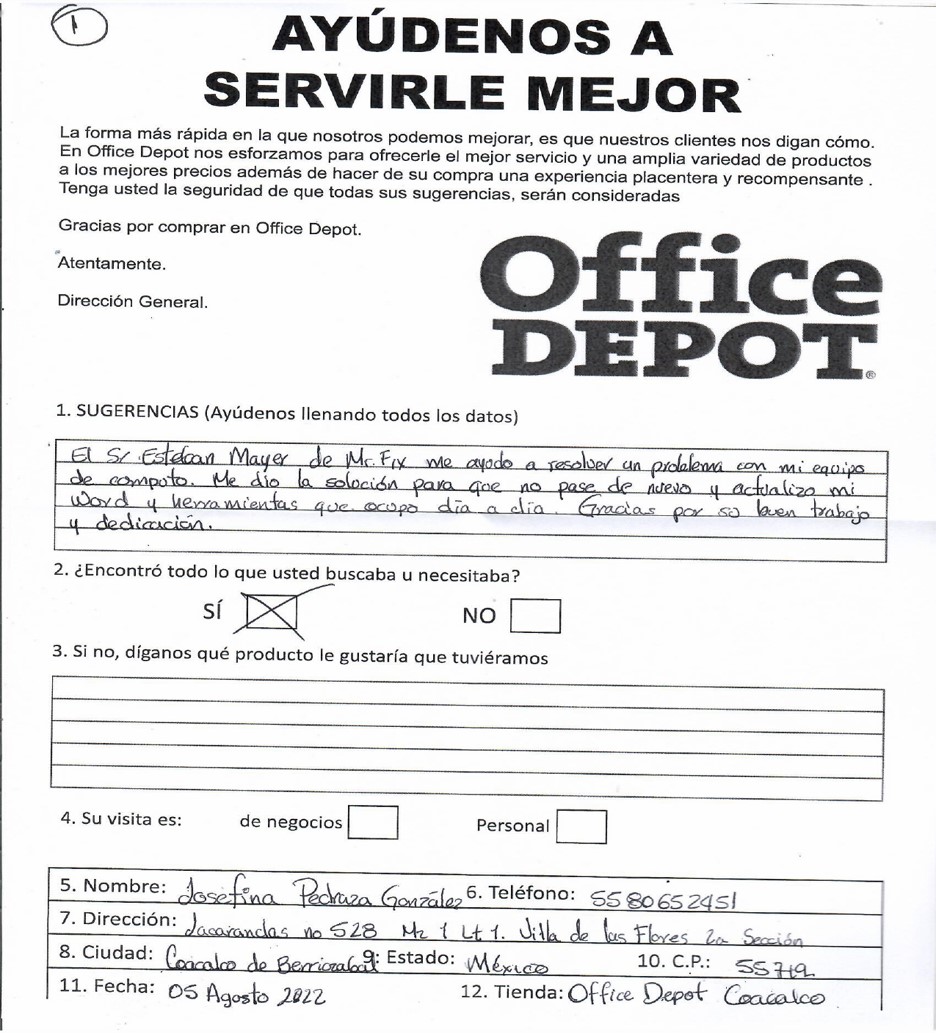 1
AYÚDENOS A
SERVIRLE MEJOR
La forma más rápida en la que nosotros podemos mejorar, es que nuestros clientes nos digan cómo.
En Office Depot nos esforzamos para ofrecerle el mejor servicio y una amplia variedad de productos
a los mejores precios además de hacer de su compra una experiencia placentera y recompensante .
Tenga usted la seguridad de que todas sus sugerencias, serán consideradas
Gracias por comprar en Office Depot.
Atentamente.
Dirección General.
Office
DEPOT®
1. SUGERENCIAS (Ayúdenos llenando todos los datos)
El Sr Esteban Mayer de Mr. Fix me ayudo a resolver un problema con mi equipo
de computo. Me dio la solución para que no pase de nuevo y actualizo mi
Word y herramientas que ocupo día a día. Gracias por su buen trabajo
y dedicación.
2. ¿Encontró todo lo que usted buscaba u necesitaba?
SÍ NO
3. Si no, díganos qué producto le gustaría que tuviéramos
4. Su visita es: de negocios Personal
5. Nombre: Josefina Pedraza González 6. Teléfono: 5580652451
7. Dirección: Jacarandas no 528 Mz 1 Lt 1. Villa de las Flores 2a Sección
8. Ciudad: Coacalco de Berriozabal 9: Estado: México 10. C.P.: 55719
11. Fecha: 05 Agosto 2022 12. Tienda: Office Depot Coacalco